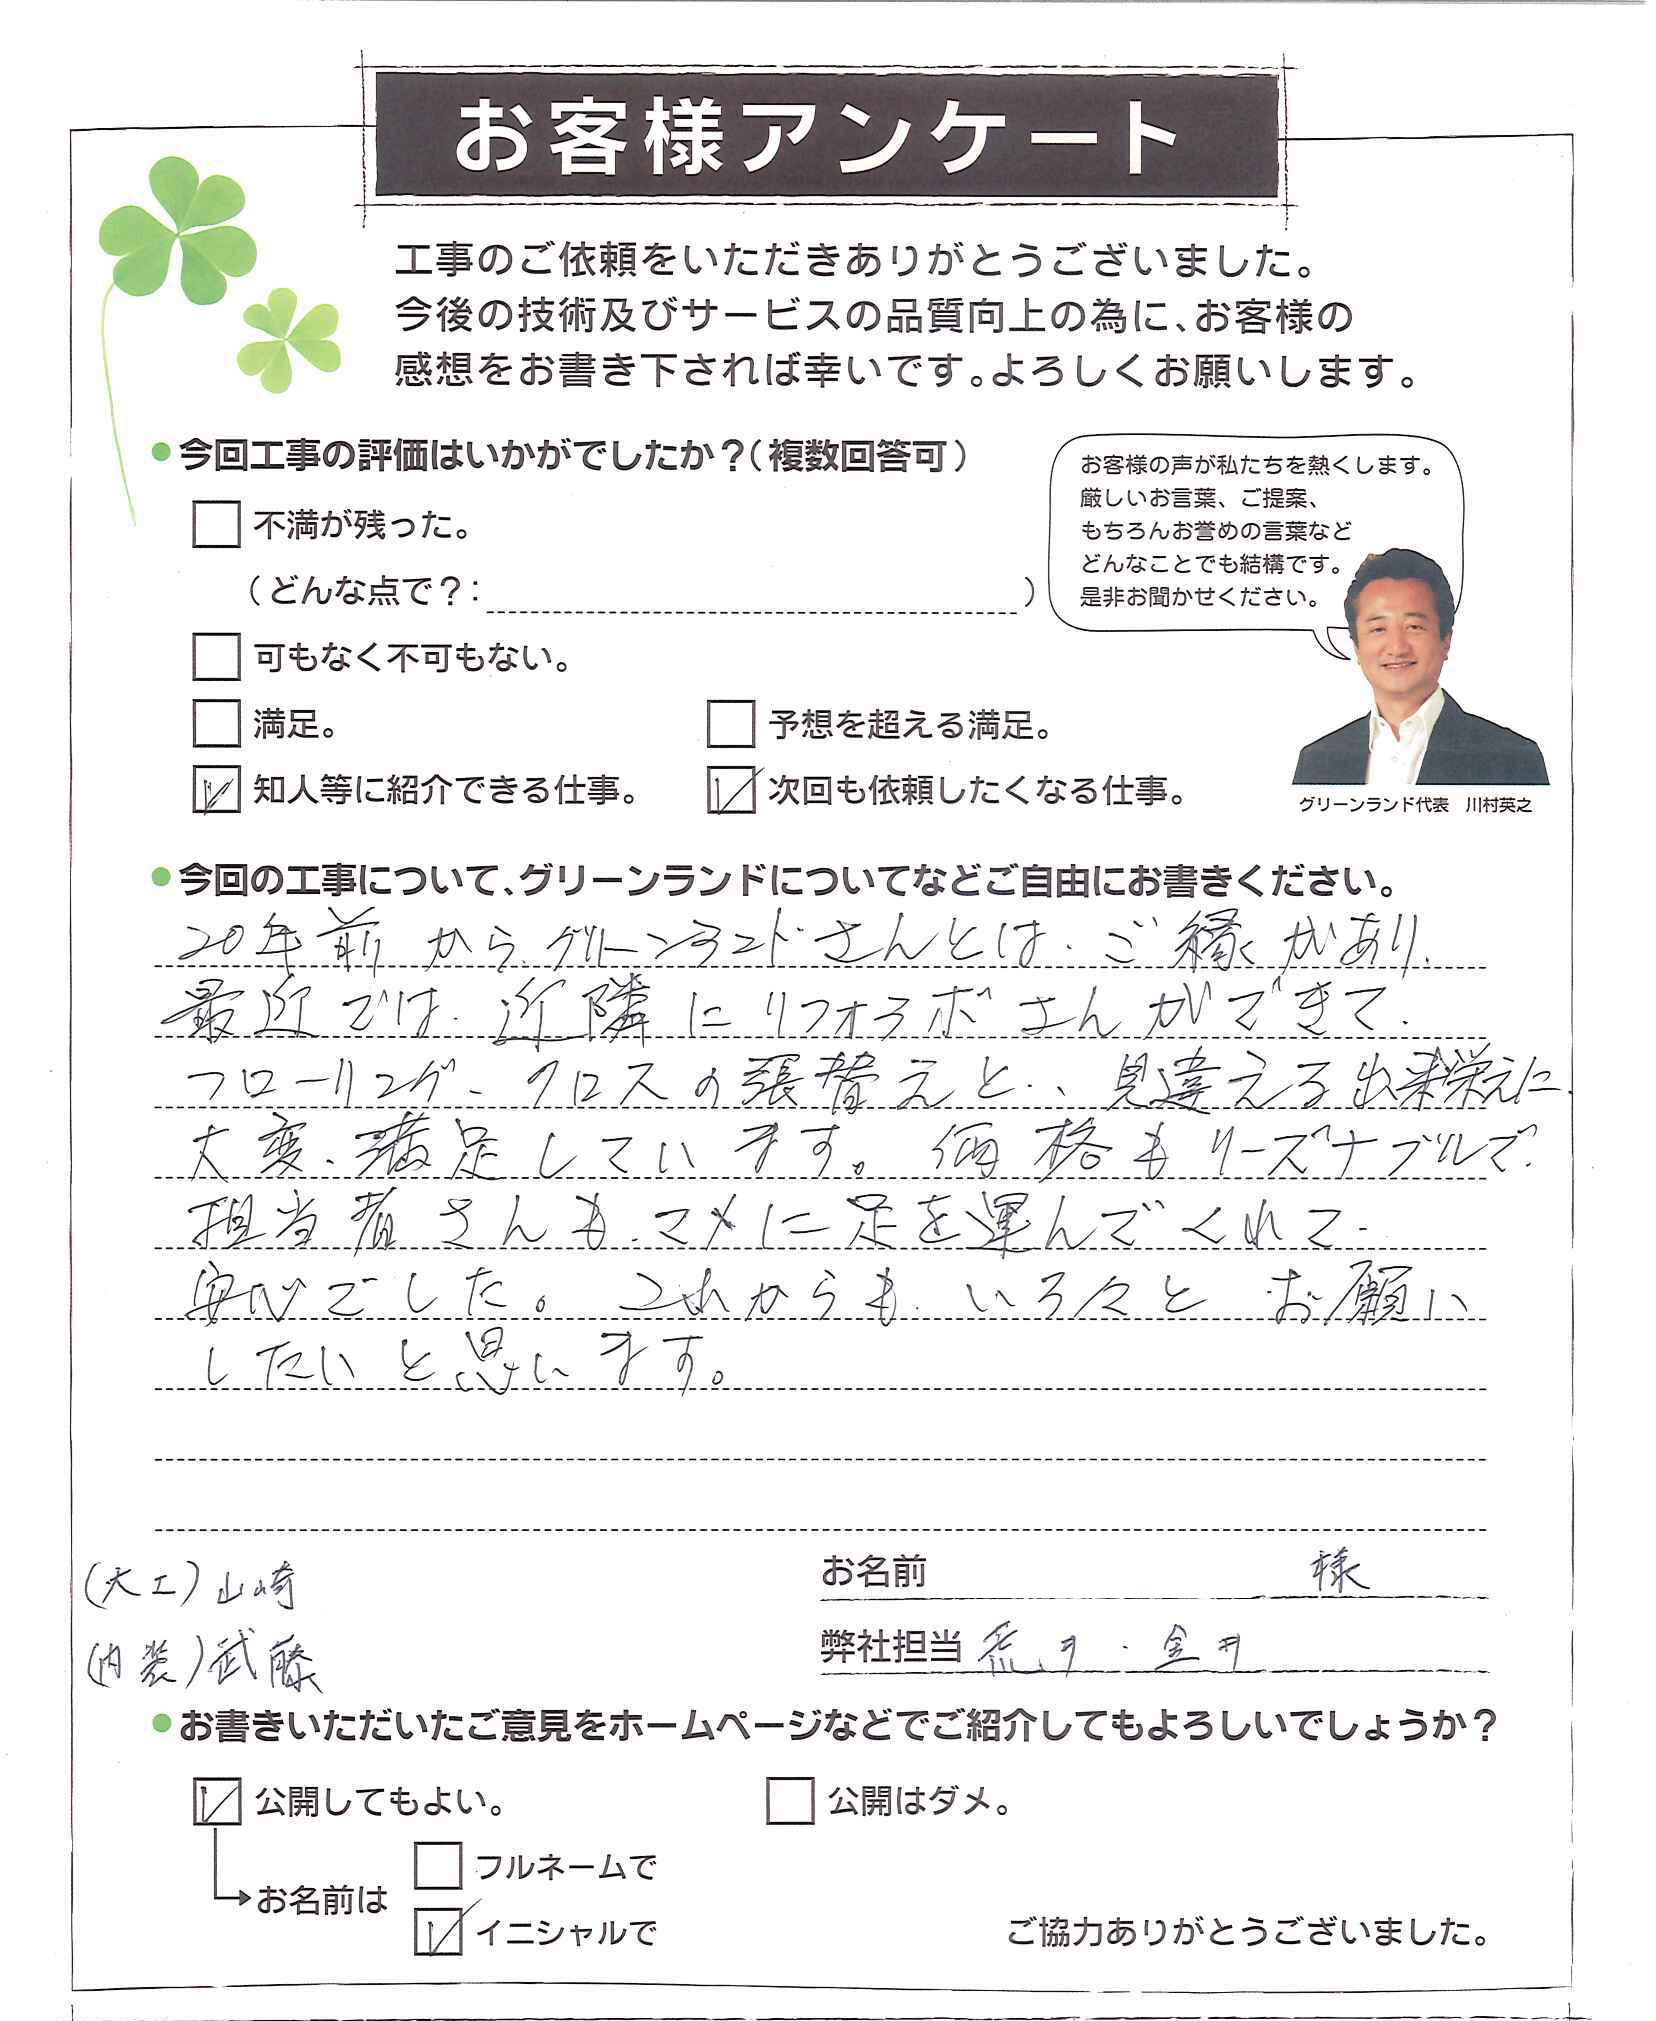 お客様アンケート
工事のご依頼をいただきありがとうございました。
今後の技術及びサービスの品質向上の為に、お客様の
感想をお書き下されば幸いです。よろしくお願いします。
今回工事の評価はいかがでしたか？（複数回答可）
不満が残った。
（どんな点で？：　　　）
可もなく不可もない。
満足。
予想を超える満足。
知人等に紹介できる仕事。
次回も依頼したくなる仕事。
お客様の声が私たちを熱くします。
厳しいお言葉、ご提案、
もちろんお誉めの言葉など
どんなことでも結構です。
是非お聞かせください。
グリーンランド代表　川村英之
今回の工事について、グリーンランドについてなどご自由にお書きください。
20年前から、グリーンランドさんとは、ご縁があり、
最近では、近隣にリフォラボさんができて、
フローリング、クロスの張替えと、、見違える出来栄えに、
大変、満足しています。価格もリーズナブルで、
担当者さんも、マメに足を運んでくれて、
安心でした。これからも、いろ々とお願い
したいと思います。
お名前　　　様
(大工)山崎
弊社担当 荒井・金井
(内装)武藤
お書きいただいたご意見をホームページなどでご紹介してもよろしいでしょうか？
公開してもよい。
公開はダメ。
お名前は
フルネームで
イニシャルで
ご協力ありがとうございました。